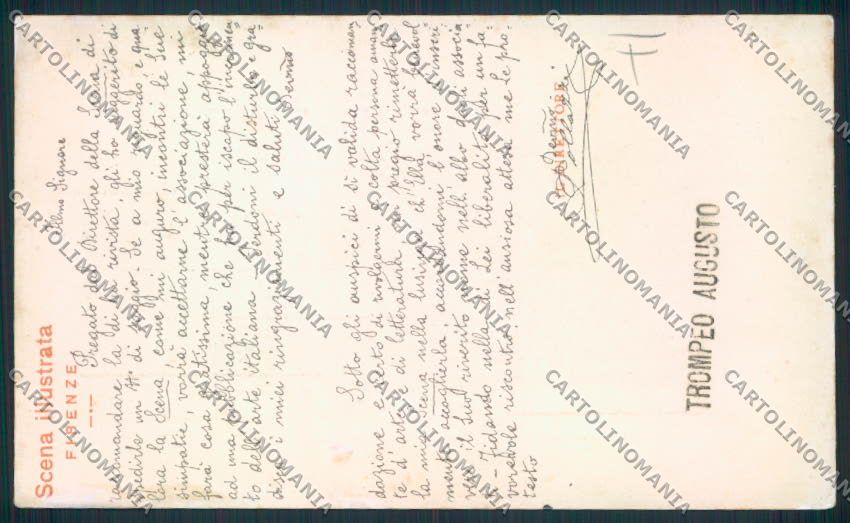 Scena illustrata
FIRENZE
Illmo Signore
Pregato dal Direttore della Scena di
raccomandare la di lui rivista, gli ho suggerito di
spedirle un N° di saggio. Se a mio riguardo e qua=
lora la Scena come mi auguro, incontri le Sue
simpatie, vorrà accettarne l'associazione, mi
farà cosa gratissima, mentre presterai appoggio
ad una pubblicazione che ha per iscopo l'incremen
to dell'arte italiana. Perdoni il disturbo e gra=
disca i miei ringraziamenti e saluti
Sotto gli auspici di sì valida raccoman
dazione e certo di rivolgermi a colta persona aman
te d'arte e di letteratura, mi pregio rimetterle
la mia Scena nella lusinga ch'Ella vorrà benevol
mente accoglierla, accordandomi l'onore inseri
re il Suo riverito nome nell'albo degli associa
ti - Fidando nella di Lei liberalità per un fa
vorevole riscontro, nell'ansiosa attesa me Le pro
testo
Devmo
IL DIRETTORE
TROMPEO AUGUSTO
CARTOLINOMANIA